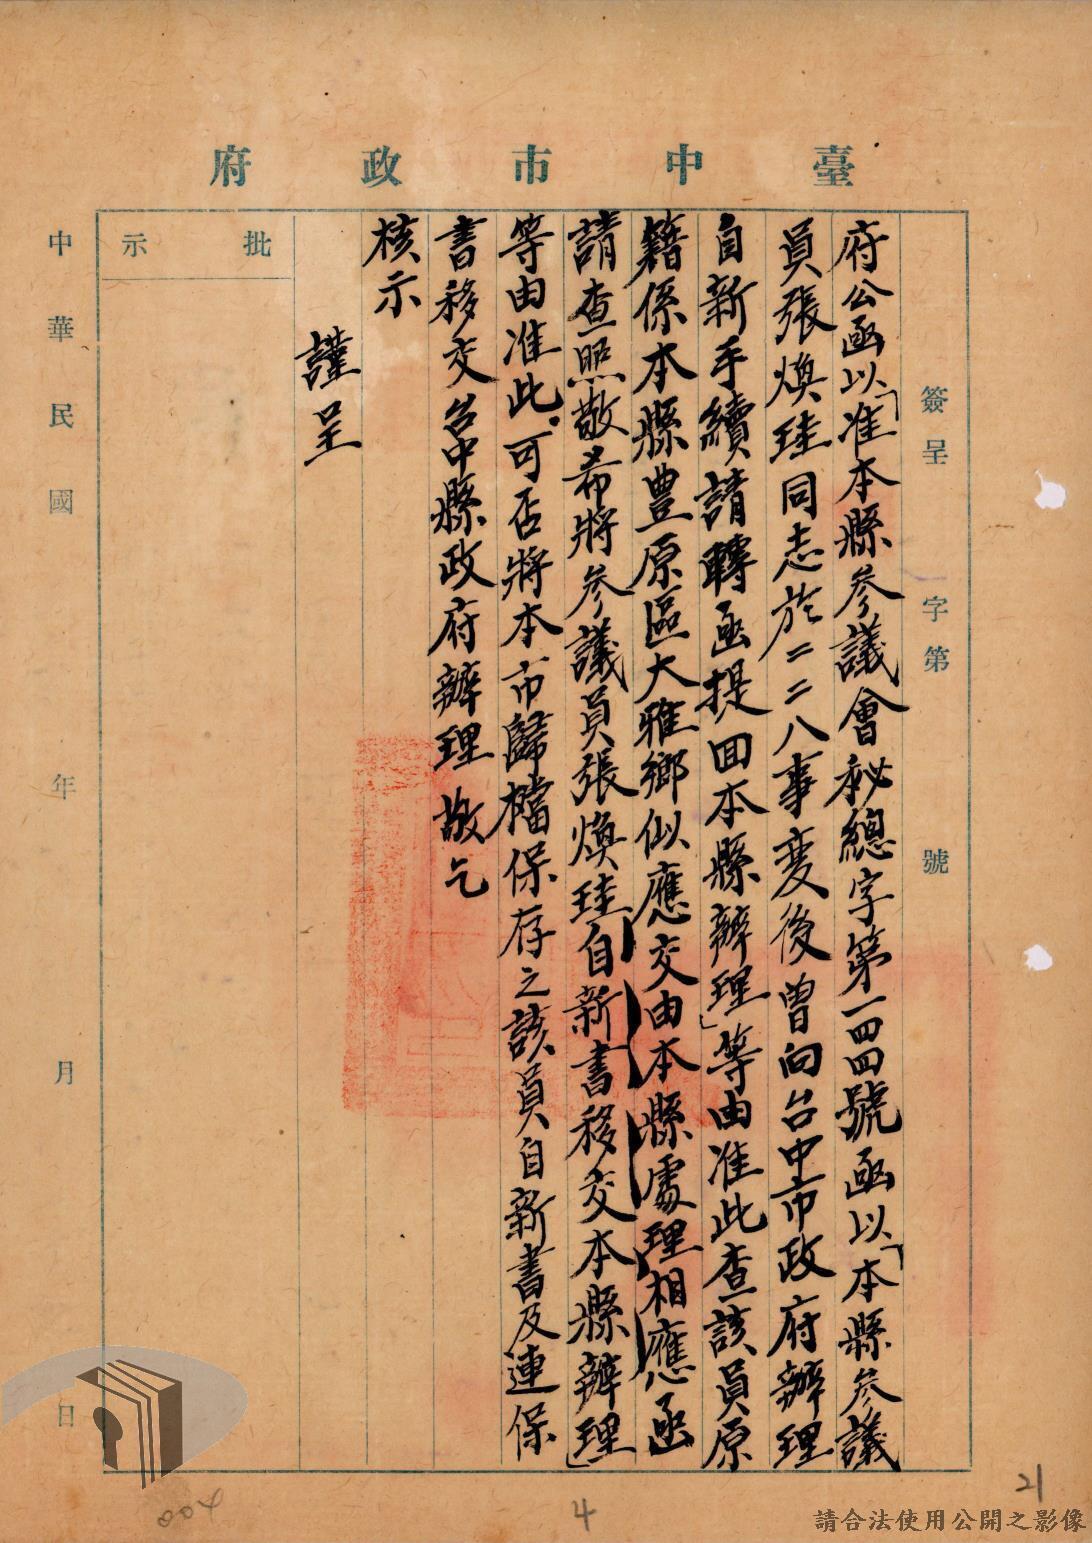 臺中市政府
簽呈 字第 號
府公函以「准本縣参議會秘總字第一四四號函以「本縣参議
員張煥珪同志於二二八事変後曾向台中市政府辦理
自新手續請轉函提回本縣辦理」等由准此查該員原
籍係本縣豊原區大雅鄉似應交由本縣處理相應函
請查照敬希將参議員張煥珪自新書移交本縣辦理」
等由准此。可否將本市歸檔保存之該員自新書及連保
書移交台中縣政府辦理 敬乞
核示
謹呈
批示
中華民國 年 月 日
004
4
21
請合法使用公開之影像